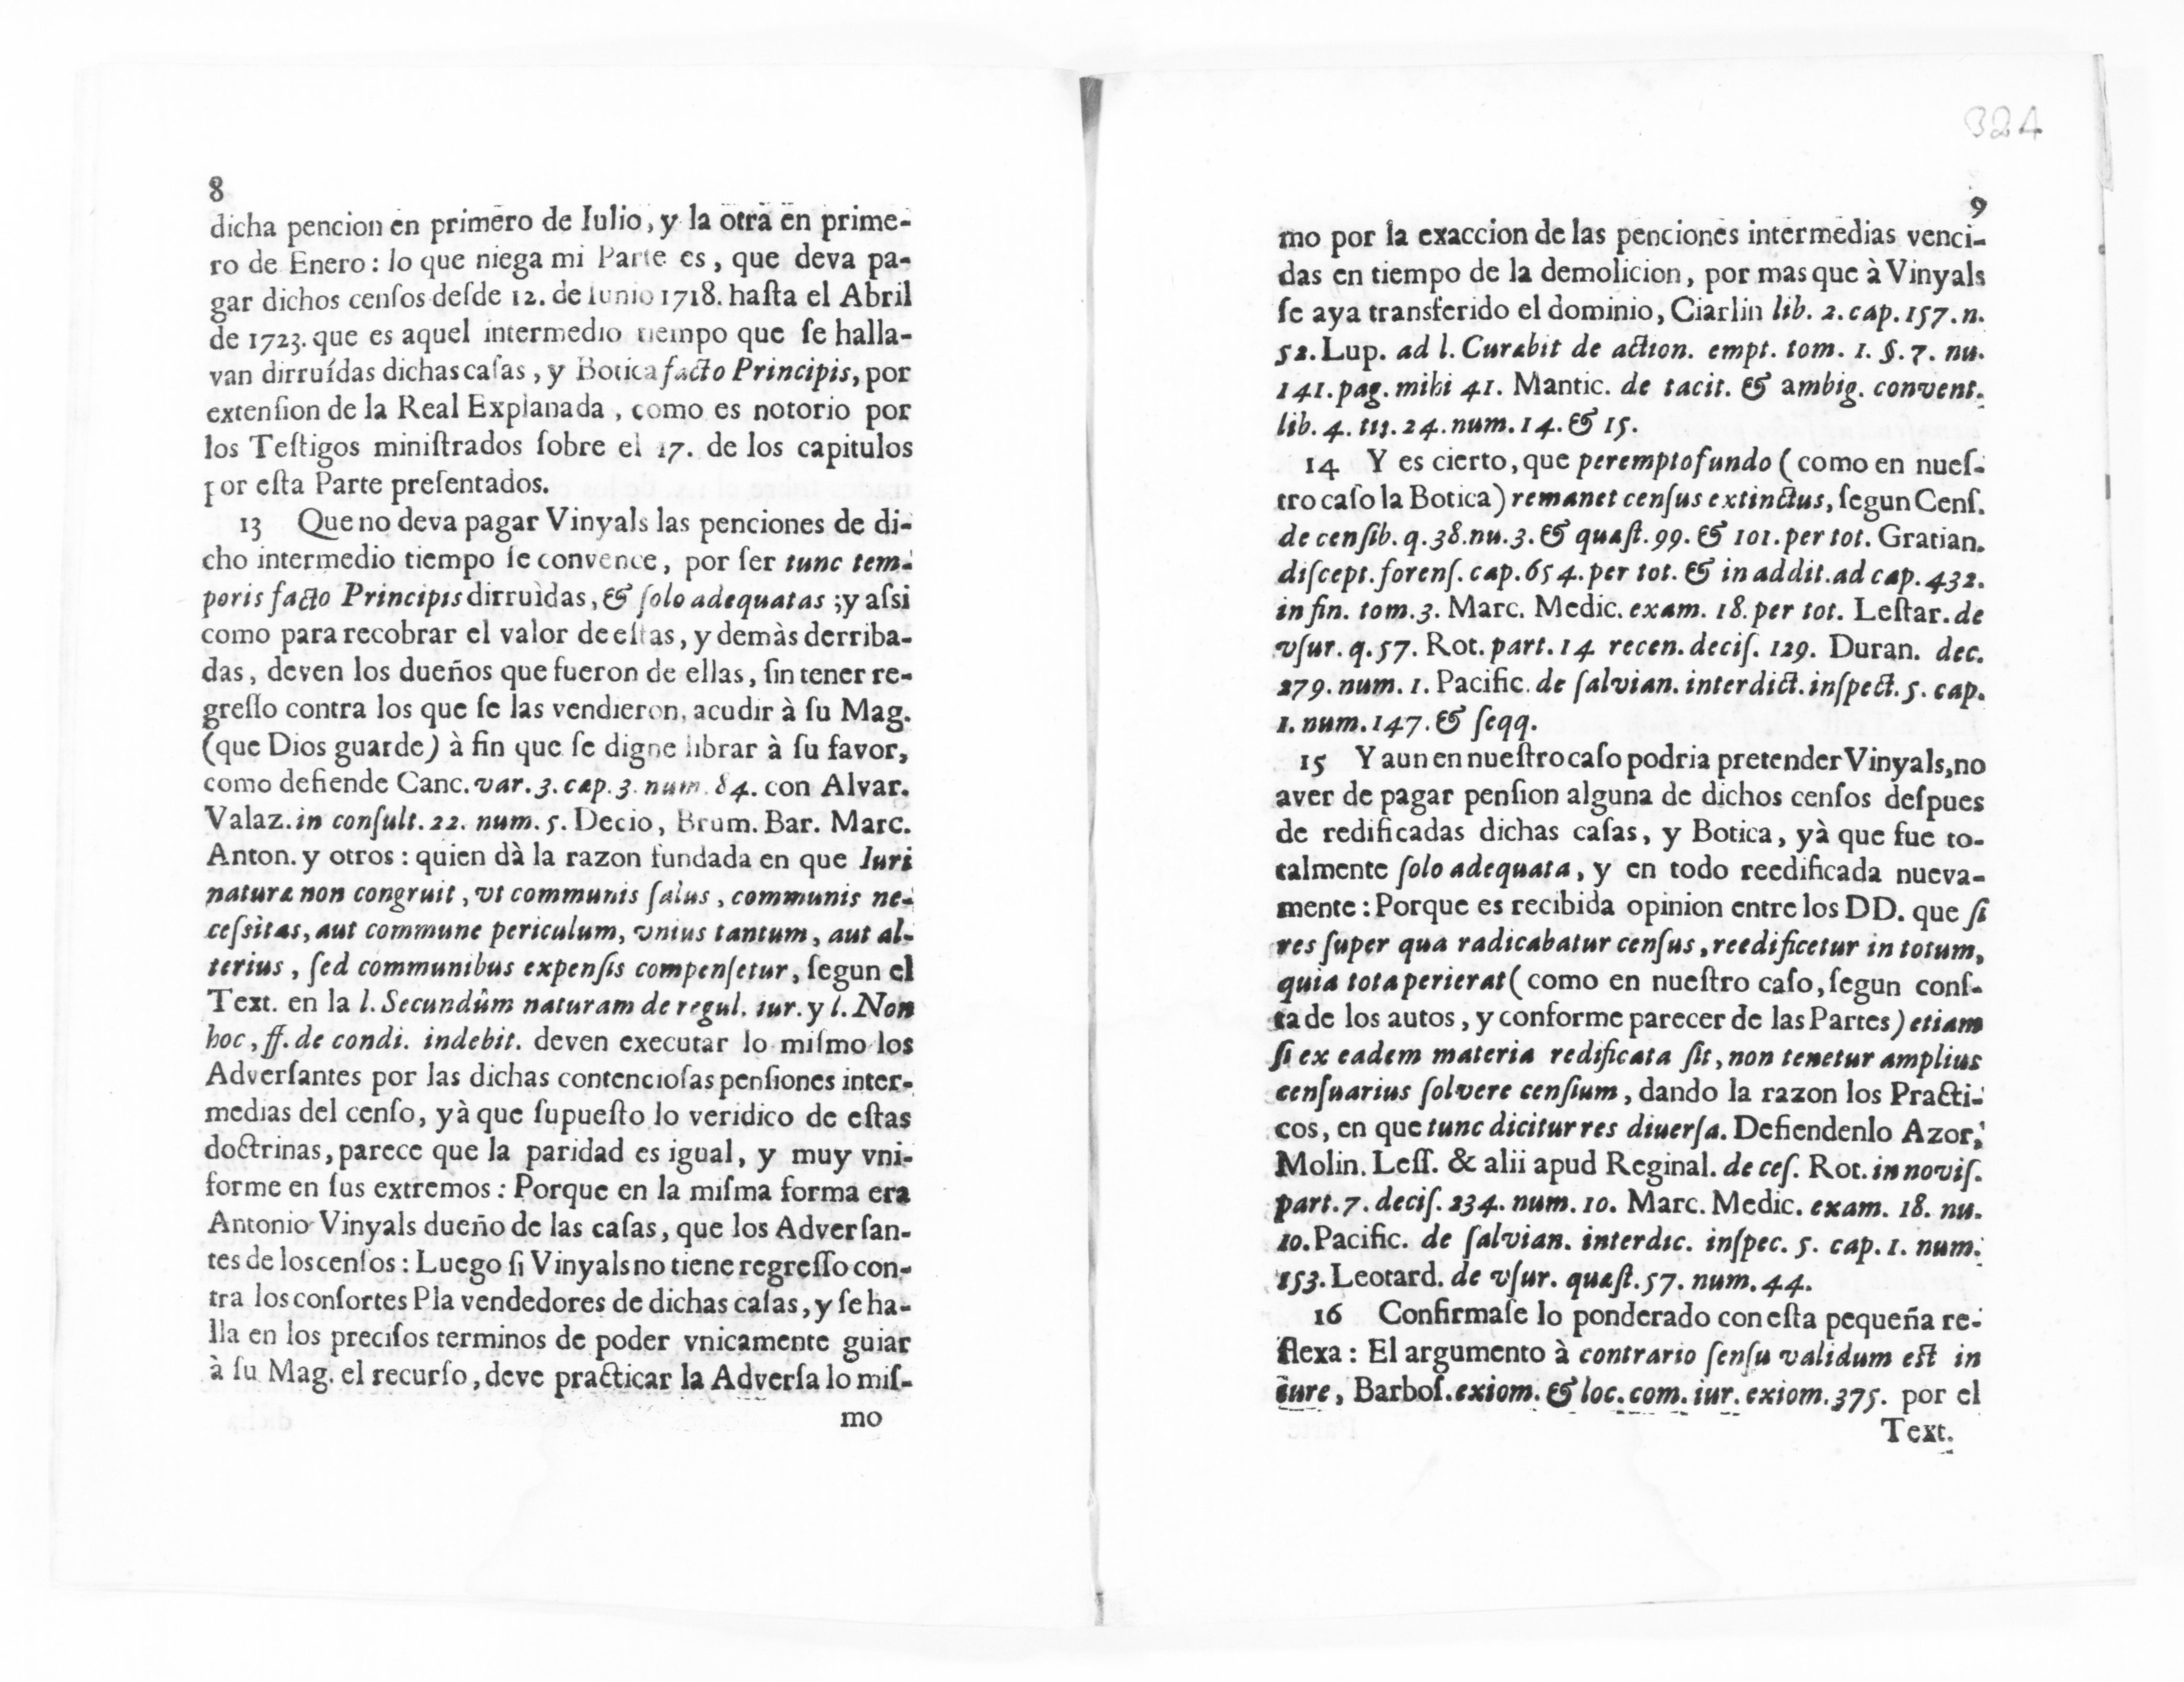 8
dicha pencion en primero de Iulio, y la otra en prime-
ro de Enero: lo que niega mi Parte es, que deva pa-
gar dichos censos desde 12. de Iunio 1718. hasta el Abril
de 1723. que es aquel intermedio tiempo que se halla-
van dirruídas dichas casas, y Botica facto Principis, por
extension de la Real Explanada, como es notorio por
los Testigos ministrados sobre el 17. de los capitulos
por esta Parte presentados.
13 Que no deva pagar Vinyals las penciones de di-
cho intermedio tiempo se convence, por ser tunc tem-
poris facto Principis dirruìdas, & solo adequatas; y assi
como para recobrar el valor de estas, y demàs derriba-
das, deven los dueños que fueron de ellas, sin tener re-
gresso contra los que se las vendieron, acudir à su Mag.
(que Dios guarde) à fin que se digne librar à su favor,
como defiende Canc. var. 3. cap. 3. num. 84. con Alvar.
Valaz. in consult. 22. num. 5. Decio, Brum. Bar. Marc.
Anton. y otros: quien dà la razon fundada en que Iuri
naturæ non congruit, vt communis salus, communis ne-
cessitas, aut commune periculum, vnius tantum, aut al-
terius, sed communibus expensis compensetur, segun el
Text. en la l. Secundûm naturam de regul. iur. y l. Non
hoc, ff. de condi. indebit. deven executar lo mismo los
Adversantes por las dichas contenciosas pensiones inter-
medias del censo, yà que supuesto lo veridico de estas
doctrinas, parece que la paridad es igual, y muy vni-
forme en sus extremos: Porque en la misma forma era
Antonio Vinyals dueño de las casas, que los Adversan-
tes de los censos: Luego si Vinyals no tiene regresso con-
tra los consortes Pla vendedores de dichas casas, y se ha-
lla en los precisos terminos de poder vnicamente guiar
à su Mag. el recurso, deve practicar la Adversa lo mis-
mo
324
9
mo por la exaccion de las penciones intermedias venci-
das en tiempo de la demolicion, por mas que à Vinyals
se aya transferido el dominio, Ciarlin lib. 2. cap. 157. n.
52. Lup. ad l. Curabit de action. empt. tom. 1. §. 7. nu.
141. pag. mihi 41. Mantic. de tacit. & ambig. convent.
lib. 4. tit. 24. num. 14. & 15.
14 Y es cierto, que perempto fundo (como en nues-
tro caso la Botica) remanet census extinctus, segun Cens.
de censib. q. 38. nu. 3. & quæst. 99. & 101. per tot. Gratian.
discept. forens. cap. 654. per tot. & in addit. ad cap. 432.
in fin. tom. 3. Marc. Medic. exam. 18. per tot. Lestar. de
vsur. q. 57. Rot. part. 14 recen. decis. 129. Duran. dec.
279. num. 1. Pacific. de salvian. interdict. inspect. 5. cap.
1. num. 147. & seqq.
15 Y aun en nuestro caso podria pretender Vinyals, no
aver de pagar pension alguna de dichos censos despues
de redificadas dichas casas, y Botica, yà que fue to-
talmente solo adequata, y en todo reedificada nueva-
mente: Porque es recibida opinion entre los DD. que si
res super qua radicabatur census, reedificetur in totum,
quia tota perierat (como en nuestro caso, segun cons-
ta de los autos, y conforme parecer de las Partes) etiam
si ex eadem materia redificata sit, non tenetur amplius
censuarius solvere censium, dando la razon los Practi-
cos, en que tunc dicitur res diuersa. Defiendenlo Azor,
Molin. Less. & alii apud Reginal. de ces. Rot. in novis.
part. 7. decis. 234. num. 10. Marc. Medic. exam. 18. nu.
10. Pacific. de salvian. interdic. inspec. 5. cap. 1. num.
153. Leotard. de vsur. quæst. 57. num. 44.
16 Confirmase lo ponderado con esta pequeña re-
flexa: El argumento à contrario sensu validum est in
iure, Barbos. exiom. & loc. com. iur. exiom. 375. por el
Text.